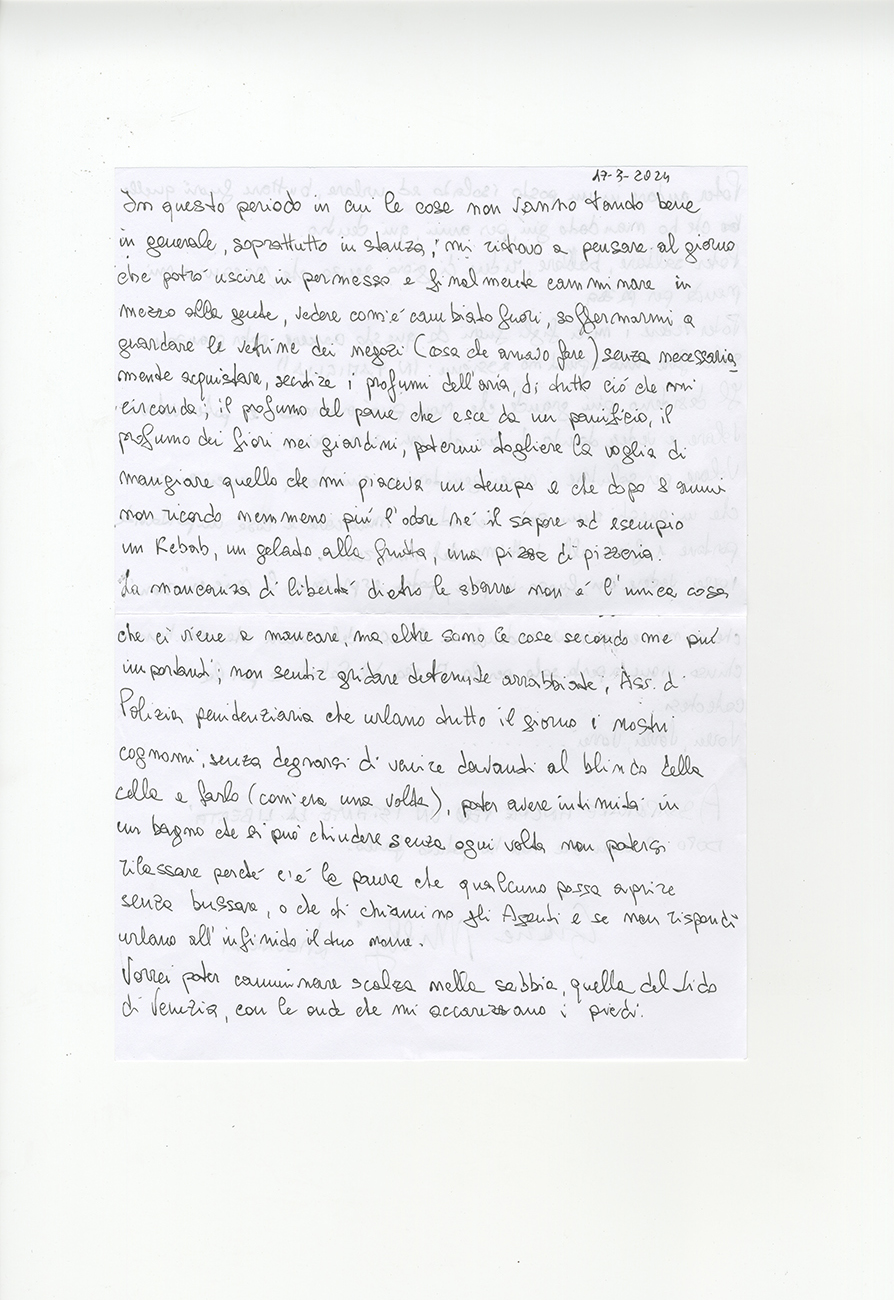 17-3-2024
In questo periodo in cui le cose non vanno tando bene
in generale, soprattutto in stanza; mi ritrovo a pensare al giorno
che potrò uscire in permesso e finalmente camminare in
mezzo alla gente, vedere com'è cambiato fuori, soffermarmi a
guardare le vetrine dei negozi (cosa che amavo fare) senza necessaria
mente acquistare, sentire i profumi dell'aria, di tutto ciò che mi
circonda; il profumo del pane che esce da un panificio, il
profumo dei fiori nei giardini, potermi togliere la voglia di
mangiare quello che mi piaceva un tempo e che dopo 8 anni
non ricordo nemmeno più l'odore né il sapore ad esempio
un Kebab, un gelato alla frutta, una pizza di pizzeria.
La mancanza di libertà dietro le sbarre non è l'unica cosa
che ci viene a mancare, ma altre sono le cose secondo me più
importanti; non sentir gridare detenute arrabbiate, Ass. di
Polizia penitenziaria che urlano tutto il giorno i nostri
cognomi, senza degnarsi di venire davanti al blindo della
cella e farlo (com'era una volta), poter avere intimità in
un bagno che si può chiudere senza ogni volta non potersi
rilassare perché c'è la paura che qualcuno possa aprire
senza bussare, o che ti chiamino gli Agenti e se non rispondi
urlano all'infinito il tuo nome.
Vorrei poter camminare scalza nella sabbia, quella del Lido
di Venezia, con le onde che mi accarezzano i piedi.